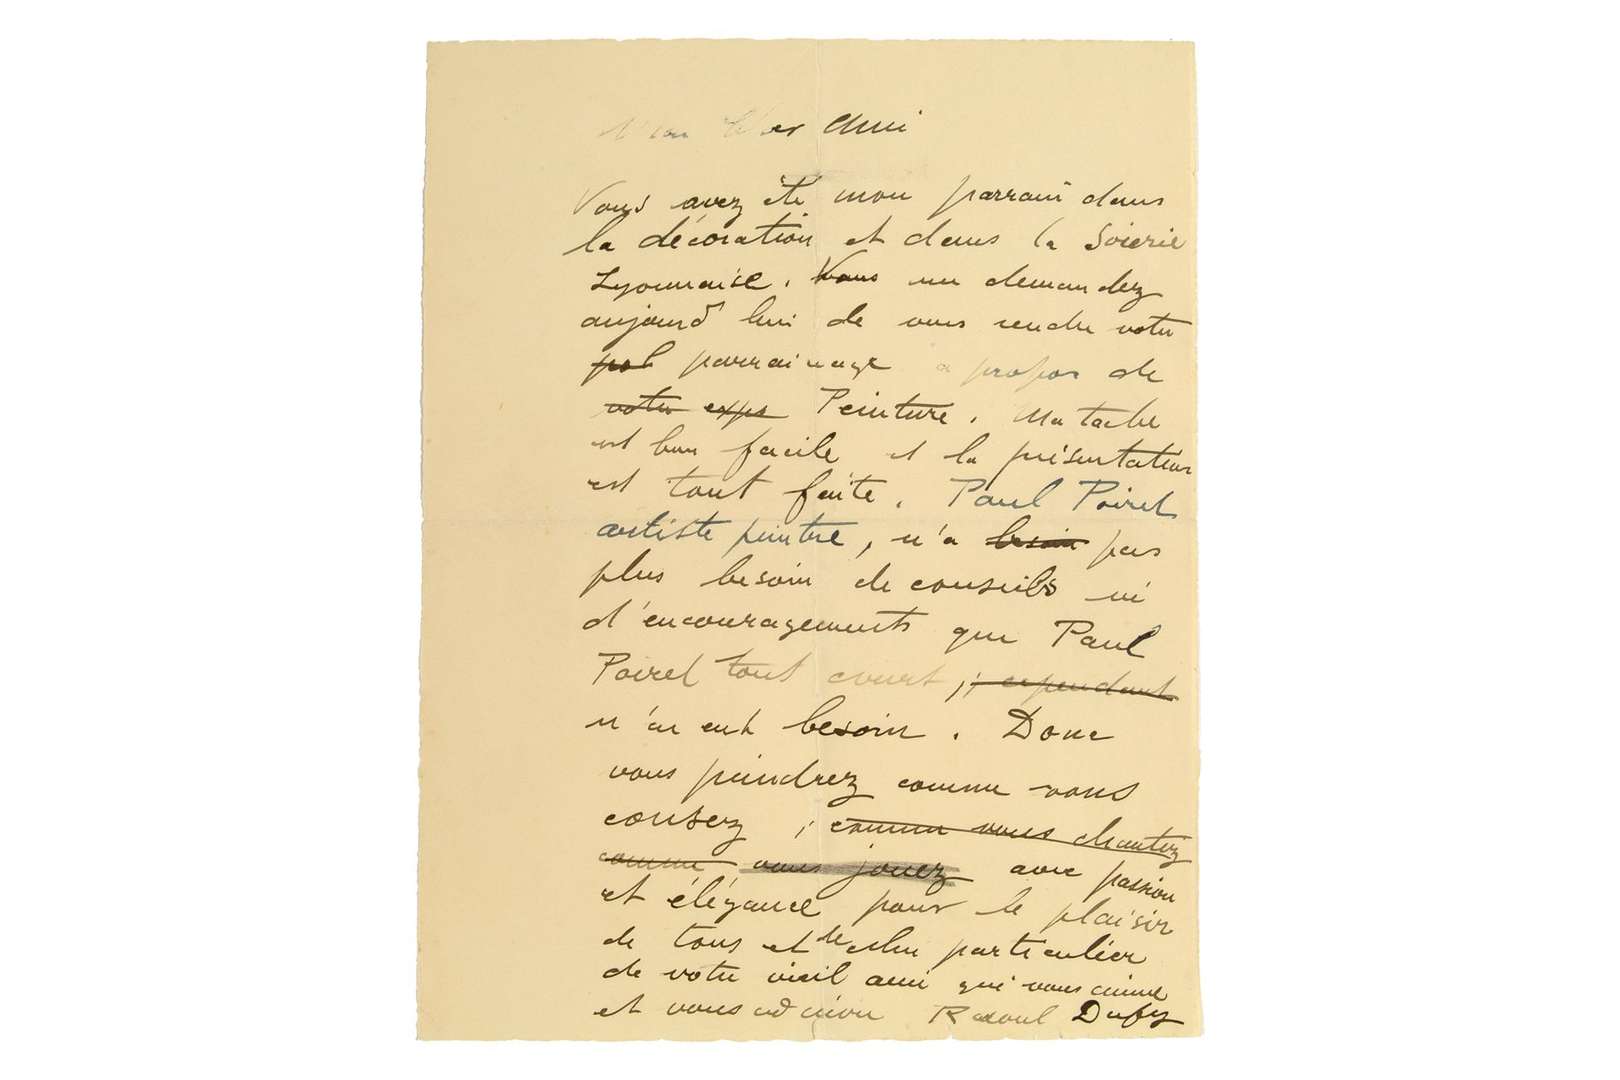 Mon Cher Ami
Vous avez été mon parrain dans
la décoration et dans la Soierie
Lyonnaise. Vous me demandez
aujourd'hui de vous rendre votre
parrainage a propos de
votre expo Peinture. Ma tache
est bien facile et la présentation
est tout faite. Paul Poiret
artiste peintre, n'a besoin pas
plus besoin de conseils ni
d'encouragements que Paul
Poiret tout court, ; cependant
n'en eut besoin. Donc
vous peindrez comme vous
cousez ; comme vous chantez
comme vous jouez avec passion
et élégance pour le plaisir
de tous et de celui particulier
de votre vieil ami qui vous aime
et vous admire Raoul Dufy